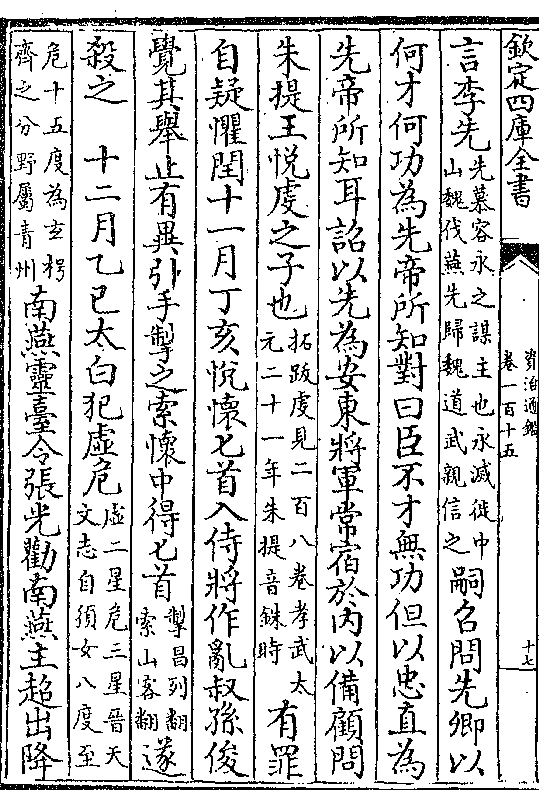 欽定四庫全書
資治通鑑
卷一百十五
十七
言李先先慕容永之謀主也永滅徙中山魏伐燕先歸魏道武親信之嗣召問先卿以
何才何功為先帝所知對曰臣不才無功但以忠直為
先帝所知耳詔以先為安東將軍常宿於內以備顧問
朱提王悅虔之子也拓跋虔見二百八卷孝武太元二十一年朱提音銖時有罪
自疑懼閏十一月丁亥悅懷匕首入侍將作亂叔孫俊
覺其舉止有異引手掣之索懷中得匕首掣昌列翻索山客翻遂
殺之　十二月乙巳太白犯虛危虛二星危三星晉天文志自須女八度至
危十五度為玄枵齊之分野屬青州南燕靈臺令張光勸南燕主超出降